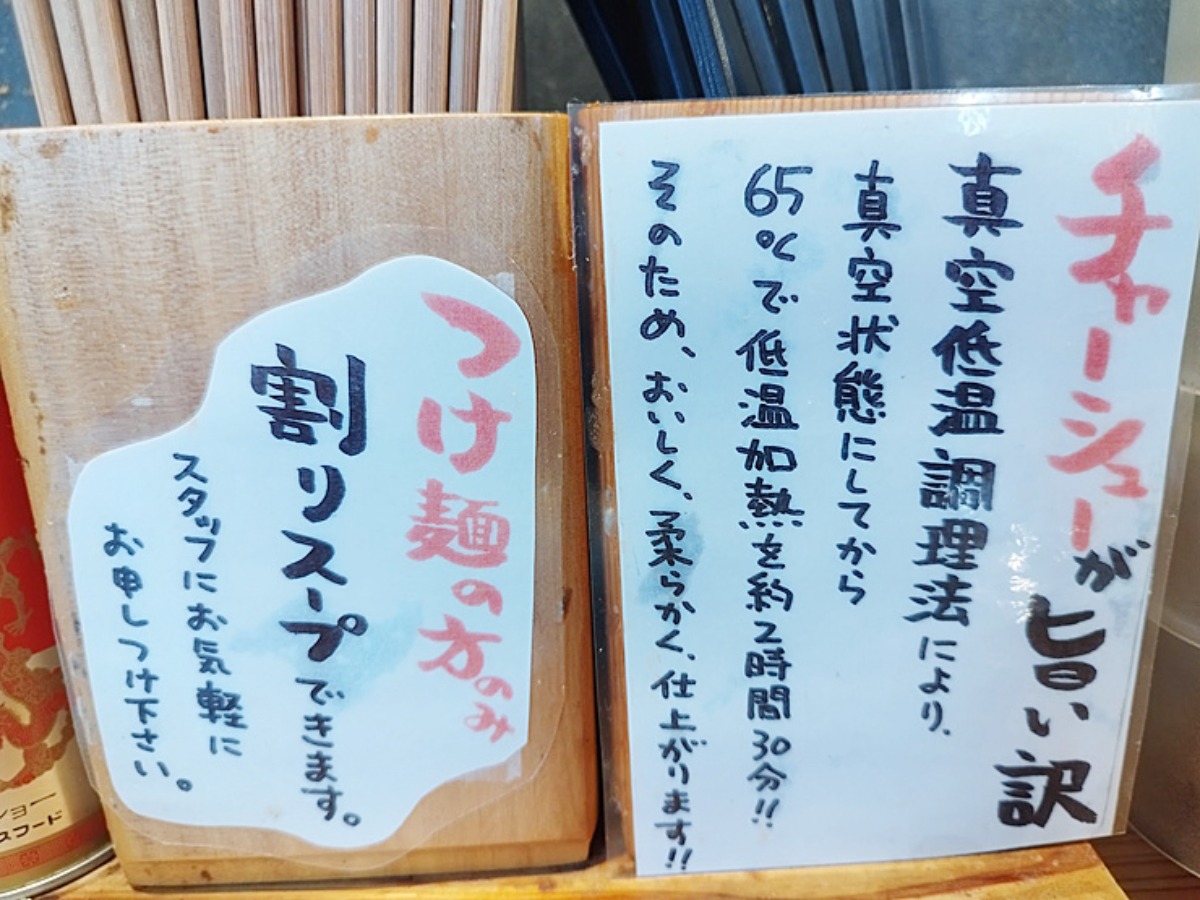 チャーシューが旨い訳
真空低温調理法により、
真空状態にしてから
65℃で低温加熱を約2時間30分!!
そのため、おいしく、柔らかく、仕上がります!!
つけ麺の方のみ
割りスープできます。
スタッフにお気軽に
お申しつけ下さい。
ショー
スフード